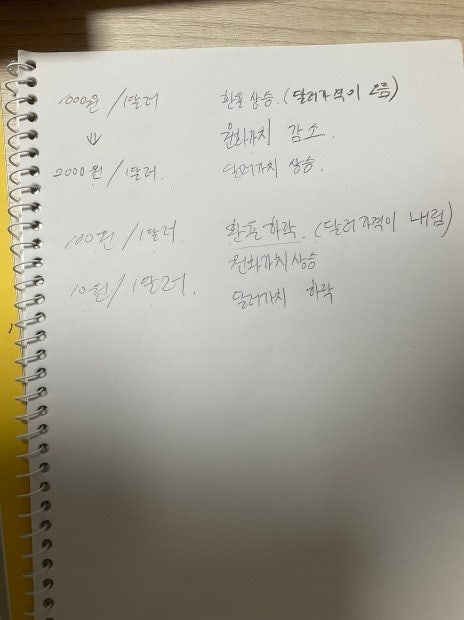 1000원 / 1달러 환율 상승. (달러가격이 오름)
⇓ 원화가치 감소.
2000원 / 1달러. 달러가치 상승.
100원 / 1달러. 환율 하락. (달러가격이 내림)
원화가치 상승
10원 / 1달러. 달러가치 하락